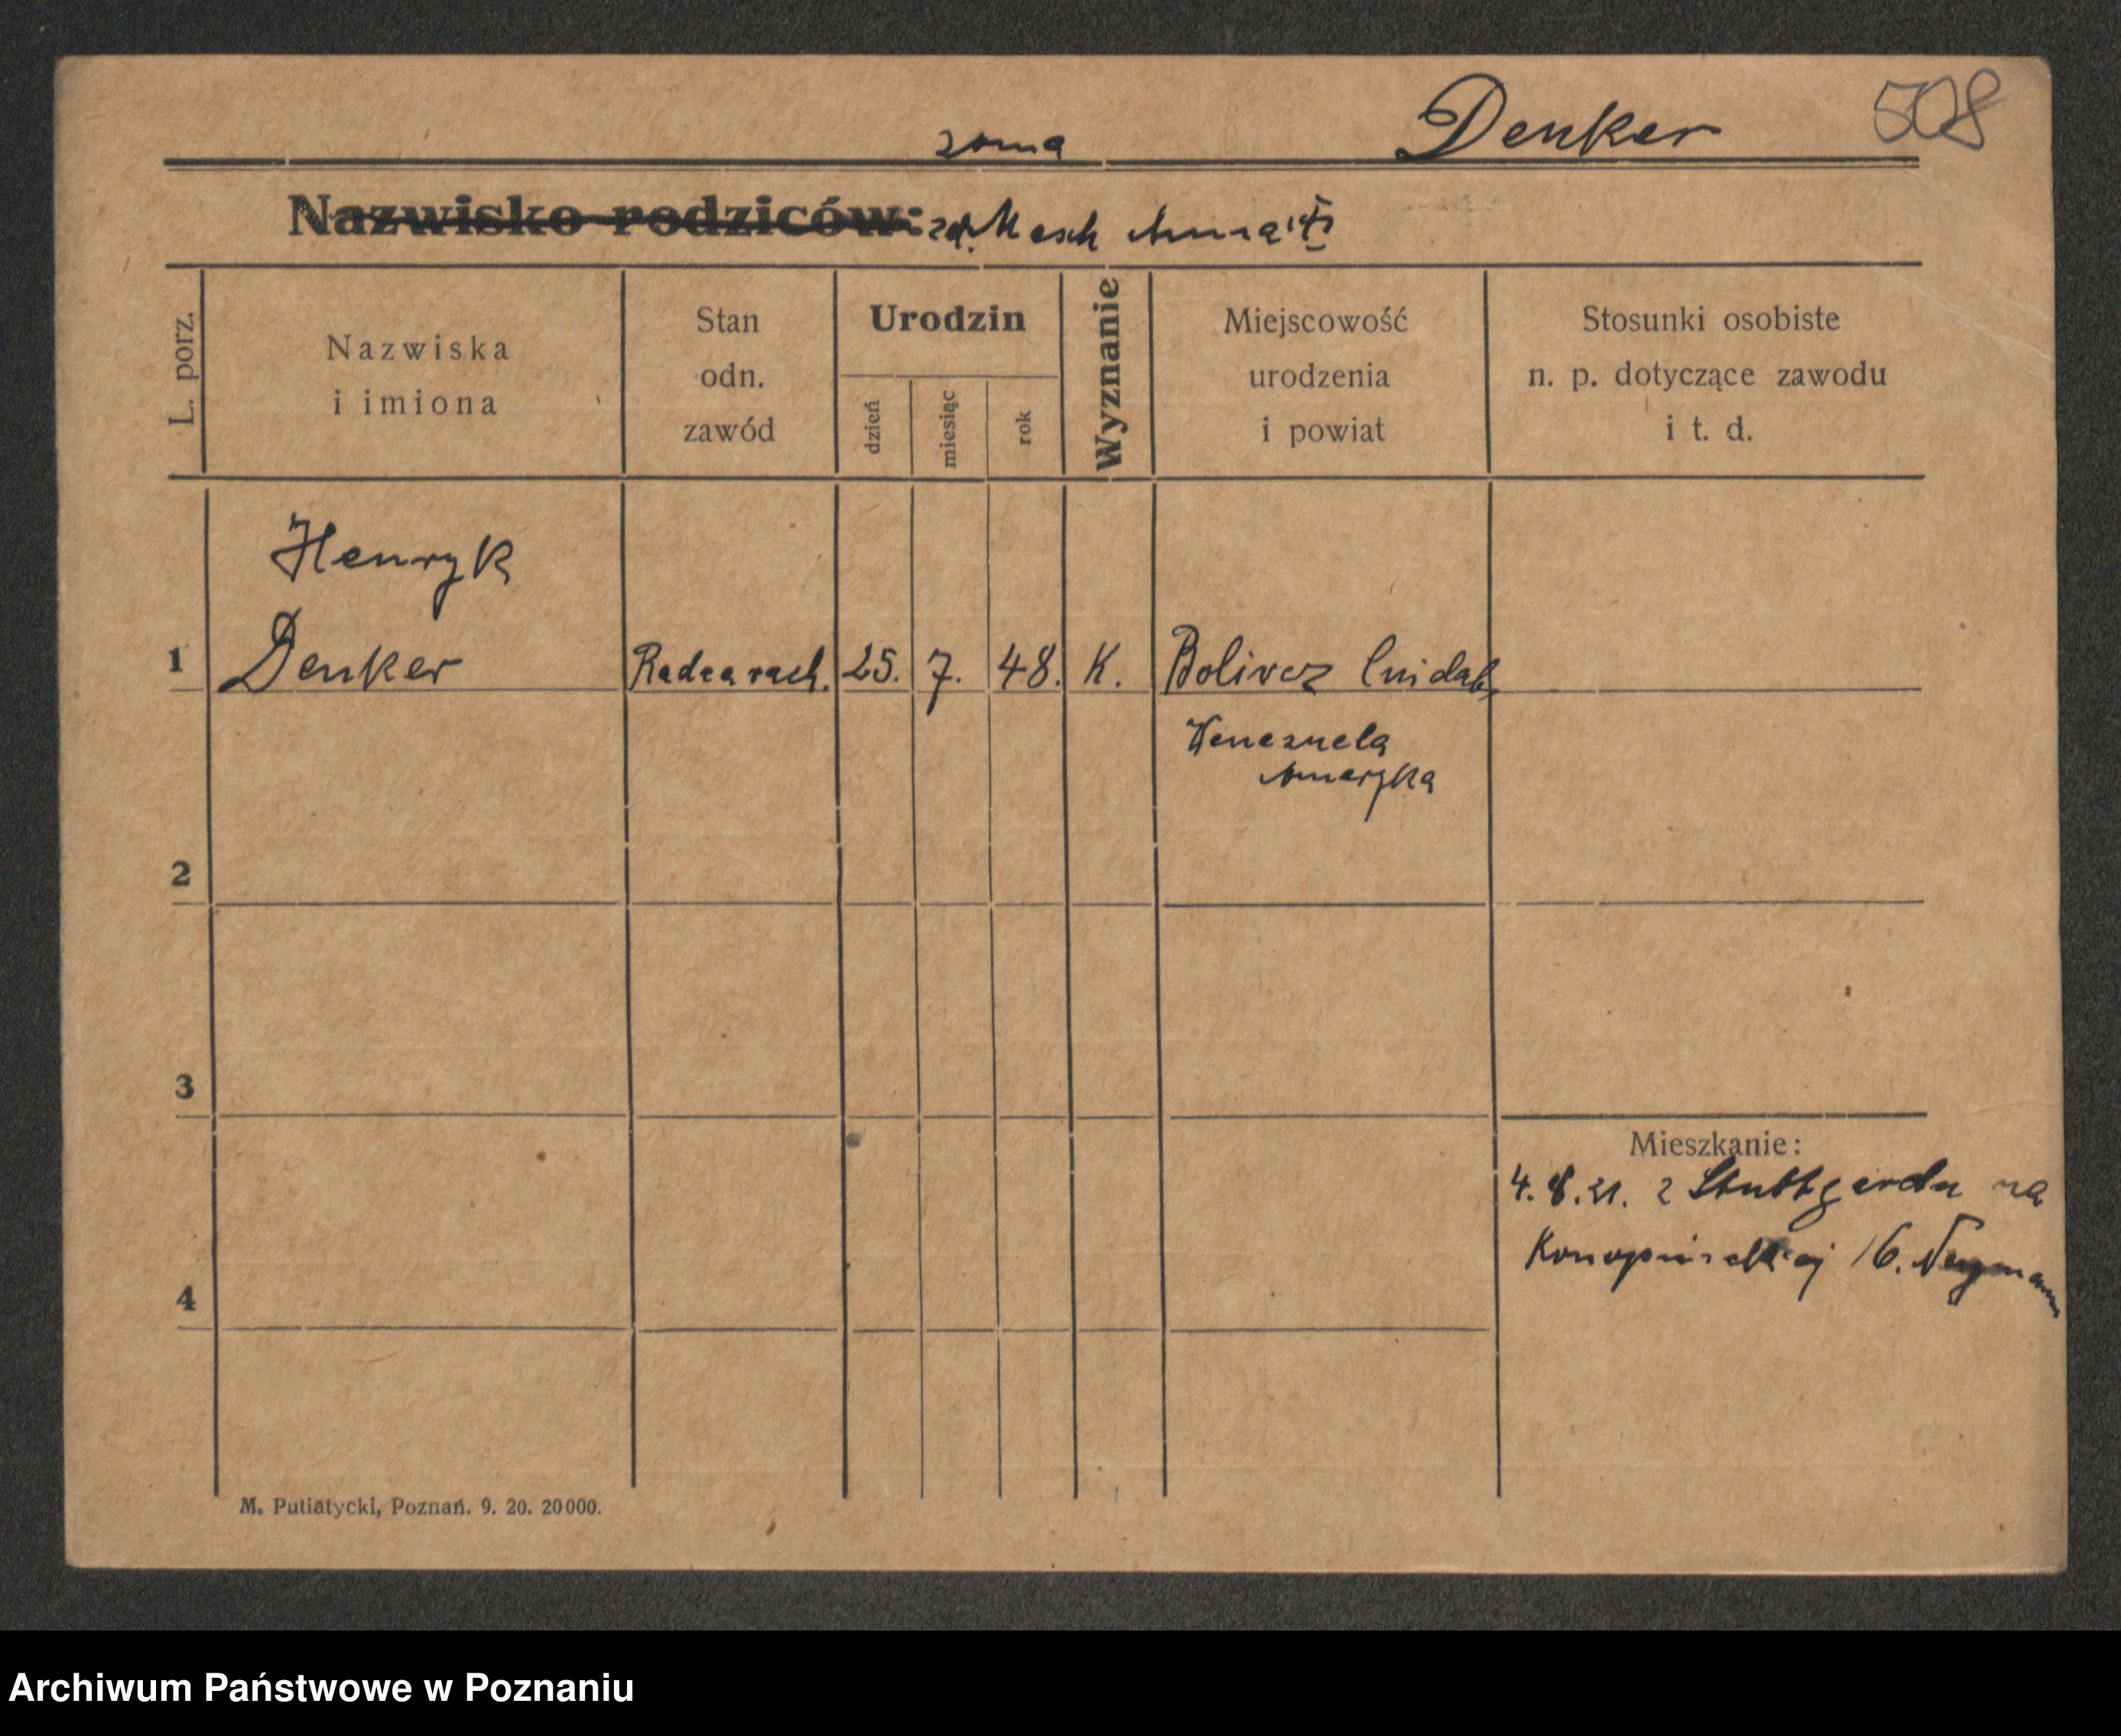 żona Denker 508
Nazwisko rodziców: zd. Mesch Anna
L. porz.
Nazwiska
i imiona
Stan
odn.
zawód
Urodzin
dzień
miesiąc
rok
Wyznanie
Miejscowość
urodzenia
i powiat
Stosunki osobiste
n. p. dotyczące zawodu
i t. d.
Henryk
1 Denker Radca rach. 25. 7. 48. K. Bolivez
Venezuela
Ameryka
2
3
Mieszkanie:
4. 8. 21. z Stuttgardu na
Konopnickiej 16. Neymann
4
M. Putiatycki, Poznań. 9. 20. 20000.
Archiwum Państwowe w Poznaniu